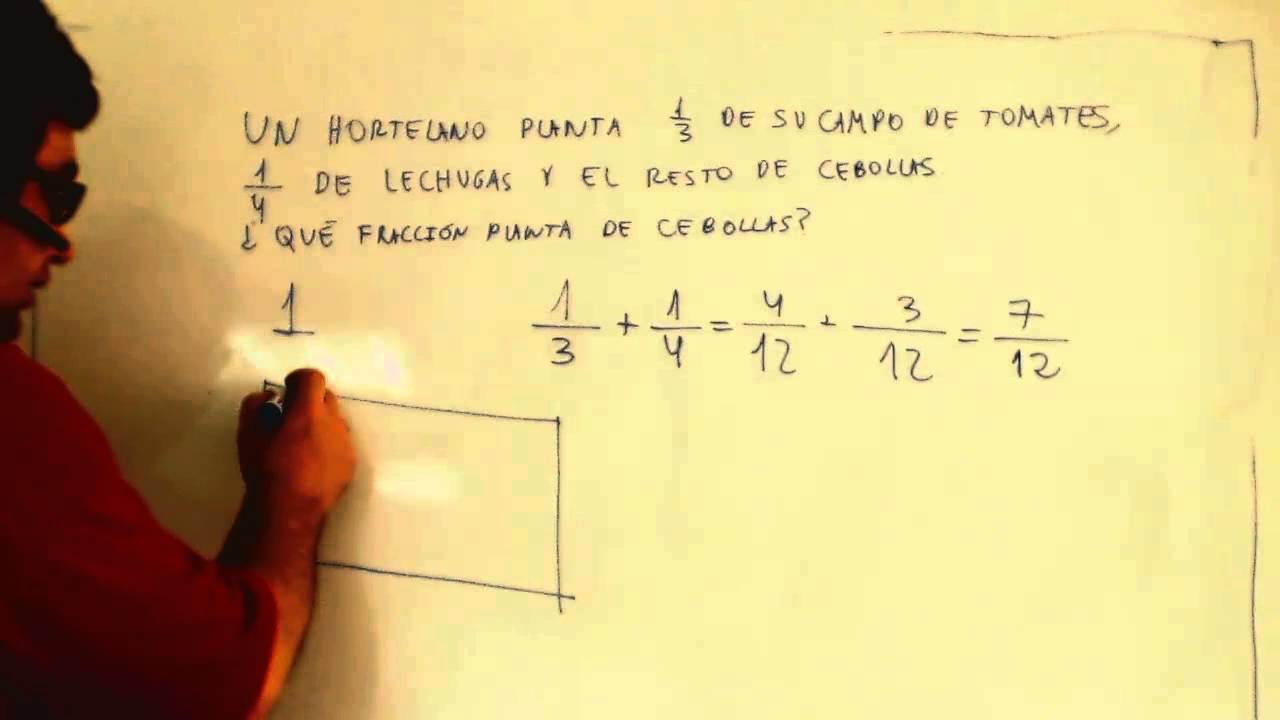 UN HORTELANO PLANTA 1/3 DE SU CAMPO DE TOMATES,
1/4 DE LECHUGAS Y EL RESTO DE CEBOLLAS
¿QUÉ FRACCIÓN PLANTA DE CEBOLLAS?
1 1/3 + 1/4 = 4/12 + 3/12 = 7/12